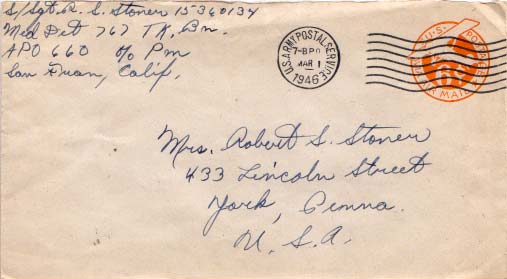 S/Sgt. R. S. Stoner 15360134
Med Det 767 TK. Bn.
APO 660 c/o Pm
San Fran, Calif.
U.S. ARMY POSTAL SERVICE
MAR 1
1946
U.S. POSTAGE
6¢
AIR MAIL
Mrs. Robert S. Stoner
433 Lincoln Street
York, Penna.
U. S. A.